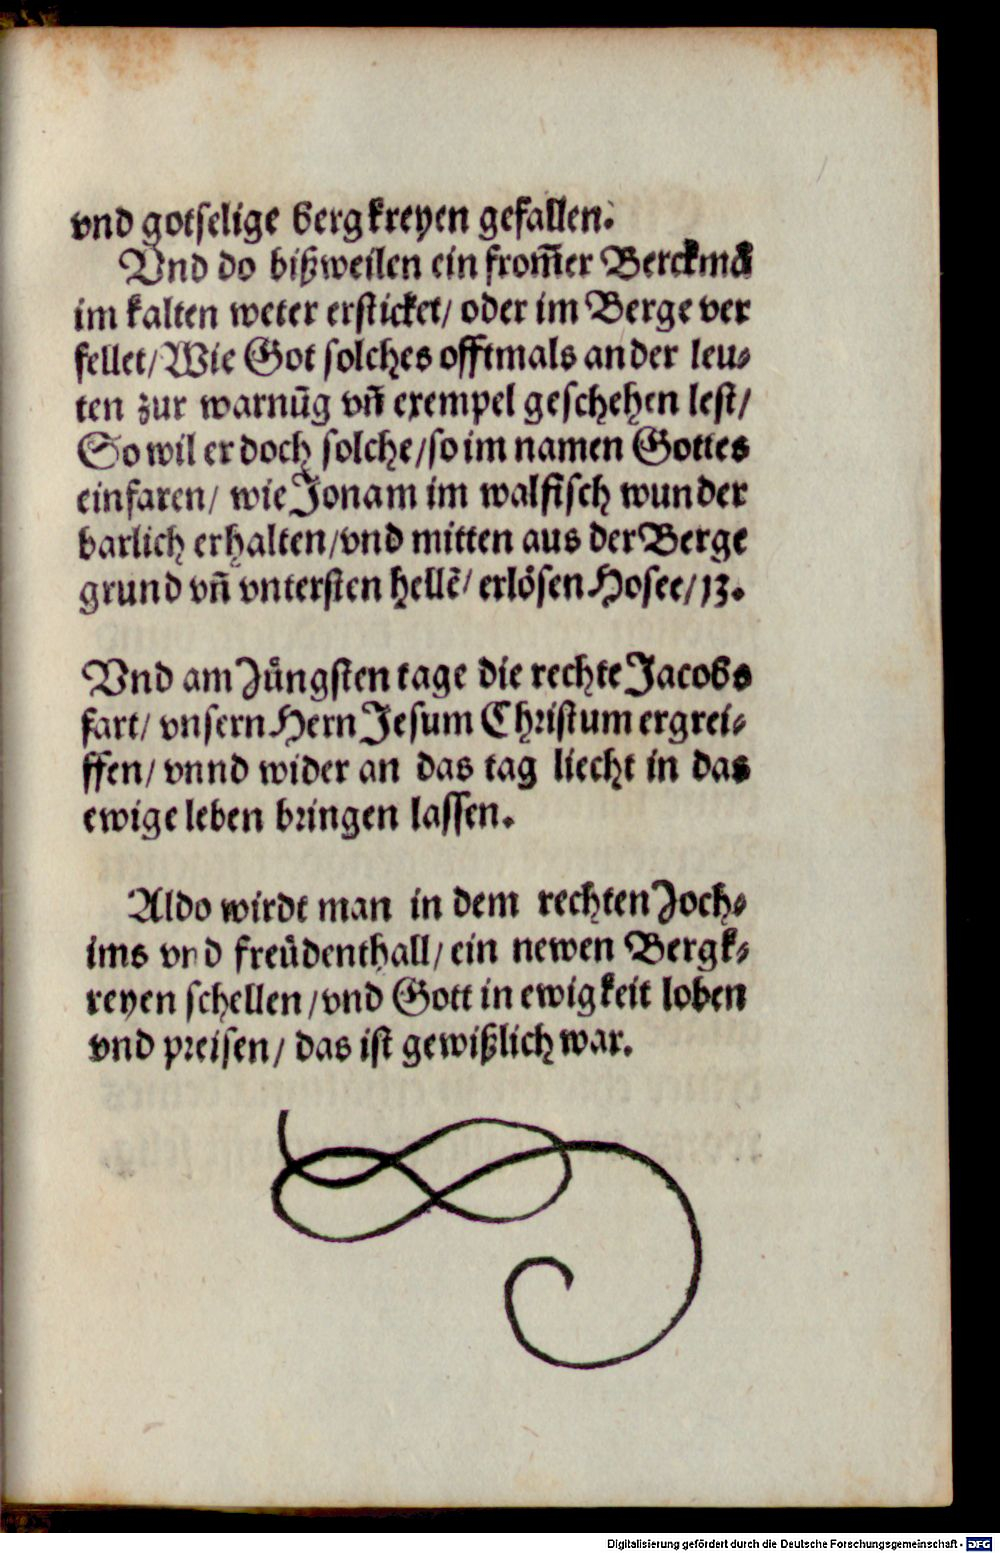 vnd gotselige bergkreyen gefallen.
Vnd do bißweilen ein from̃er Berckmã
im kalten weter ersticket/ oder im Berge ver
fellet/ Wie Got solches offtmals ander leu⸗
ten zur warnũg vñ exempel geschehen lest/
So wil er doch solche/ so im namen Gottes
einfaren/ wie Jonam im walfisch wunder
barlich erhalten/ vnd mitten aus der Berge
grund vñ vntersten hellẽ/ erlösen Hosee/ 13.
Vnd am Jüngsten tage die rechte Jacobs
fart/ vnsern Hern Jesum Christum ergrei⸗
ffen/ vnnd wider an das tag liecht in das
ewige leben bringen lassen.
Aldo wirdt man in dem rechten Joch⸗
ims vnd freüdenthall/ ein newen Bergk⸗
reyen schellen/ vnd Gott in ewigkeit loben
vnd preisen/ das ist gewißlich war.
Digitalisierung gefördert durch die Deutsche Forschungsgemeinschaft - DFG